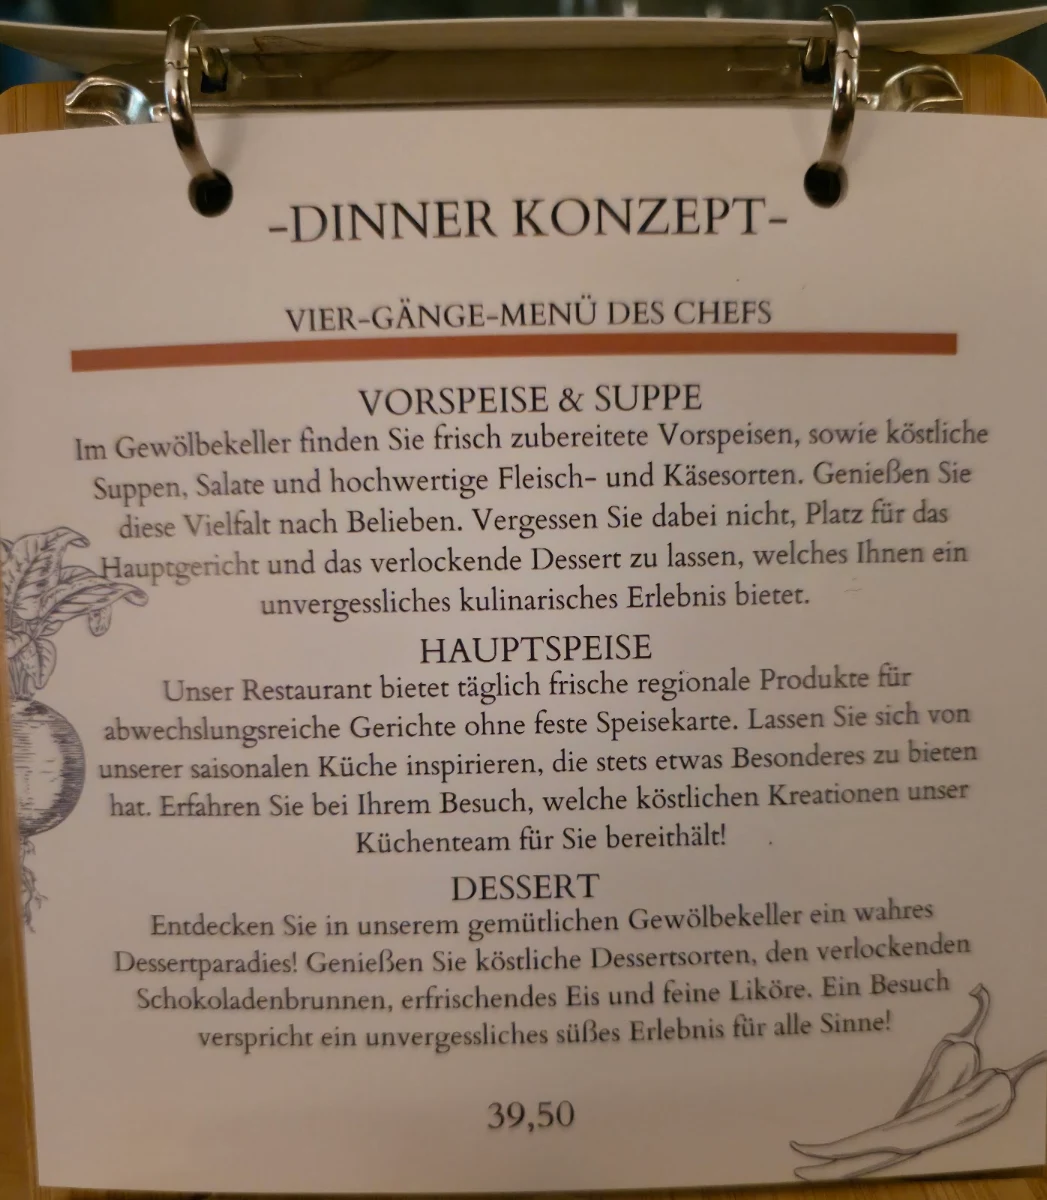 -DINNER KONZEPT-
VIER-GÄNGE-MENÜ DES CHEFS
VORSPEISE & SUPPE
Im Gewölbekeller finden Sie frisch zubereitete Vorspeisen, sowie köstliche
Suppen, Salate und hochwertige Fleisch- und Käsesorten. Genießen Sie
diese Vielfalt nach Belieben. Vergessen Sie dabei nicht, Platz für das
Hauptgericht und das verlockende Dessert zu lassen, welches Ihnen ein
unvergessliches kulinarisches Erlebnis bietet.
HAUPTSPEISE
Unser Restaurant bietet täglich frische regionale Produkte für
abwechslungsreiche Gerichte ohne feste Speisekarte. Lassen Sie sich von
unserer saisonalen Küche inspirieren, die stets etwas Besonderes zu bieten
hat. Erfahren Sie bei Ihrem Besuch, welche köstlichen Kreationen unser
Küchenteam für Sie bereithält!
DESSERT
Entdecken Sie in unserem gemütlichen Gewölbekeller ein wahres
Dessertparadies! Genießen Sie köstliche Dessertsorten, den verlockenden
Schokoladenbrunnen, erfrischendes Eis und feine Liköre. Ein Besuch
verspricht ein unvergessliches süßes Erlebnis für alle Sinne!
39,50